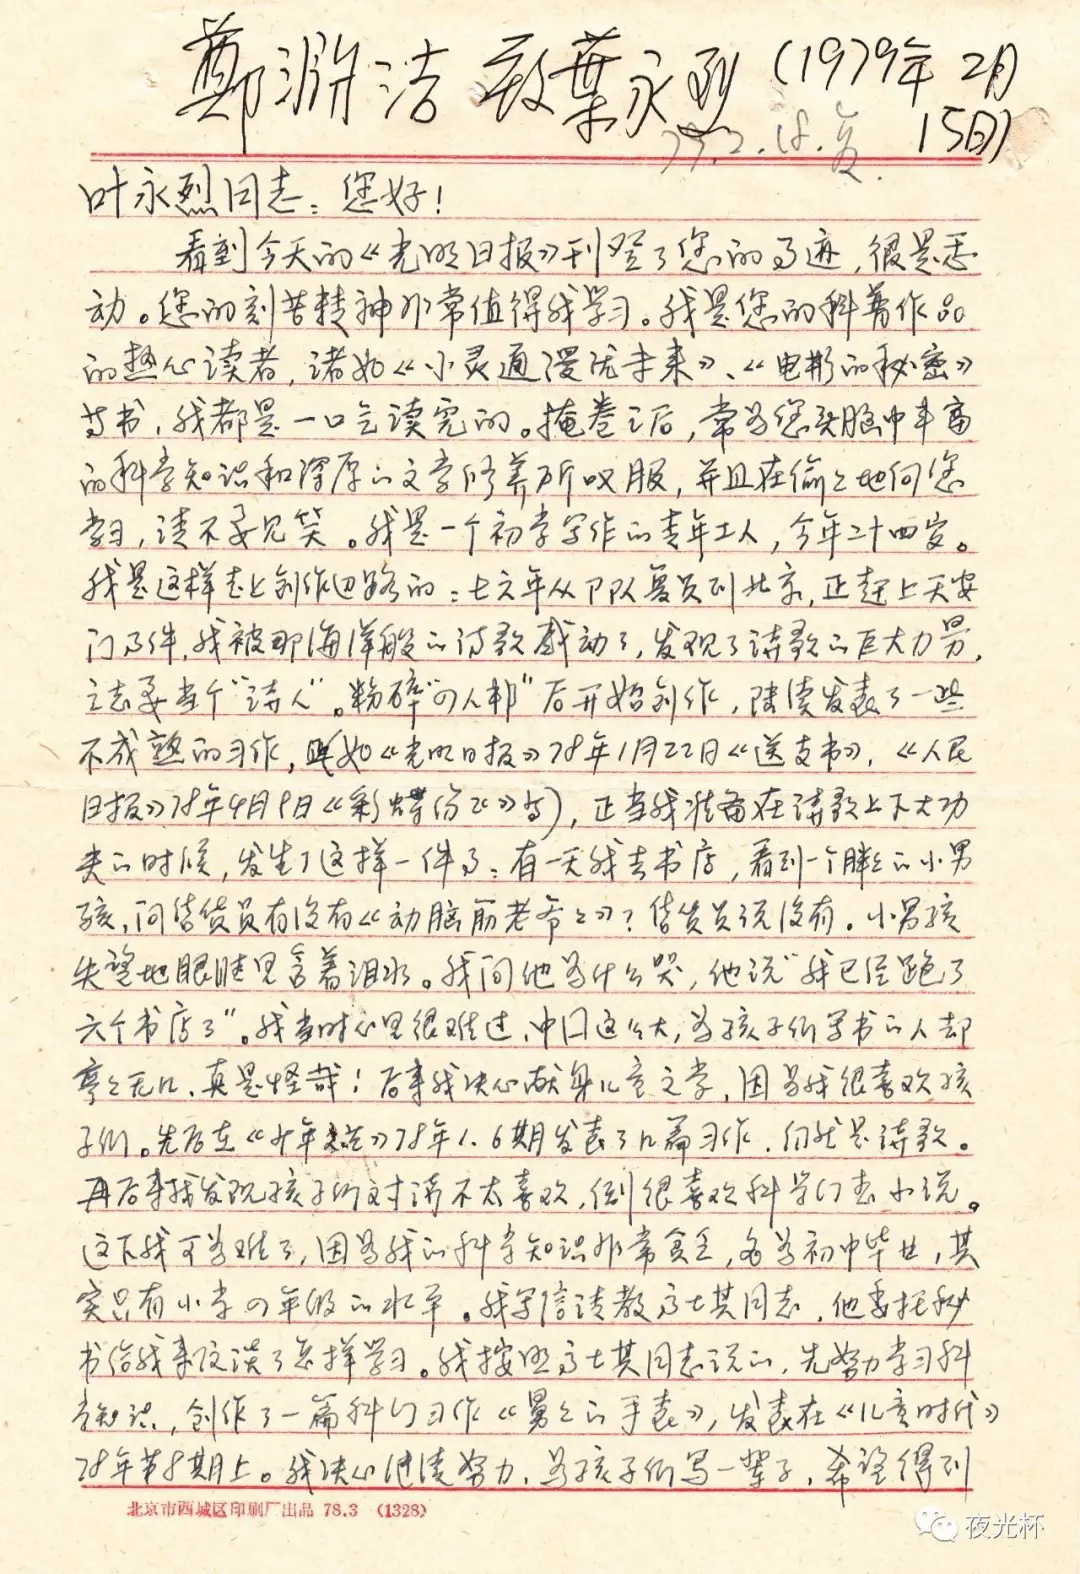 鄭淵洁致葉永烈(1979年2月
15日)
79.2.18.复.
叶永烈同志：您好！
看到今天的《光明日报》刊登了您的事迹，很是感
动。您的刻苦精神非常值得我学习。我是您的科普作品
的热心读者，诸如《小灵通漫游未来》、《电影的秘密》
等书，我都是一口气读完的。掩卷之后，常为您头脑中丰富
的科学知识和深厚的文学修养所叹服，并且在偷偷地向您
学习，请不要见笑。我是一个初学写作的青年工人，今年二十四岁。
我是这样走上创作道路的：七六年从部队复员到北京，正赶上天安
门事件，我被那海洋般的诗歌感动了，发现了诗歌的巨大力量，
立志要当个“诗人”。粉碎“四人邦”后开始创作，陆续发表了一些
不成熟的习作，(如《光明日报》78年1月22日《送支书》，《人民
日报》78年4月9日《彩蝶纷飞》等)，正当我准备在诗歌上下大功
夫的时候，发生了这样一件事：有一天我去书店，看到一个胖胖的小男
孩，问售货员有没有《动脑筋老爷爷》？售货员说没有。小男孩
失望地眼睛里含着泪水。我问他为什么哭，他说“我已经跑了
六个书店了”。我当时心里很难过，中国这么大，为孩子们写书的人却
寥寥无几，真是怪哉！后来我决心献身儿童文学，因为我很喜欢孩
子们。先后在《少年文艺》78年1.6期发表了几篇习作，仍然是诗歌。
再后来我发现孩子们对诗不太喜欢，倒很喜欢科学幻想小说。
这下我可为难了，因为我的科学知识非常贫乏，名为初中毕业，其
实只有小学四年级的水平。我写信请教高士其同志，他委托秘
书给我来信谈了怎样学习。我按照高士其同志说的，先努力学习科
学知识，创作了一篇科幻习作《舅舅的手表》，发表在《儿童时代》
78年第8期上。我决心继续努力，为孩子们写一辈子，希望得到
北京市西城区印刷厂出品 78.3 (1328)
夜光杯